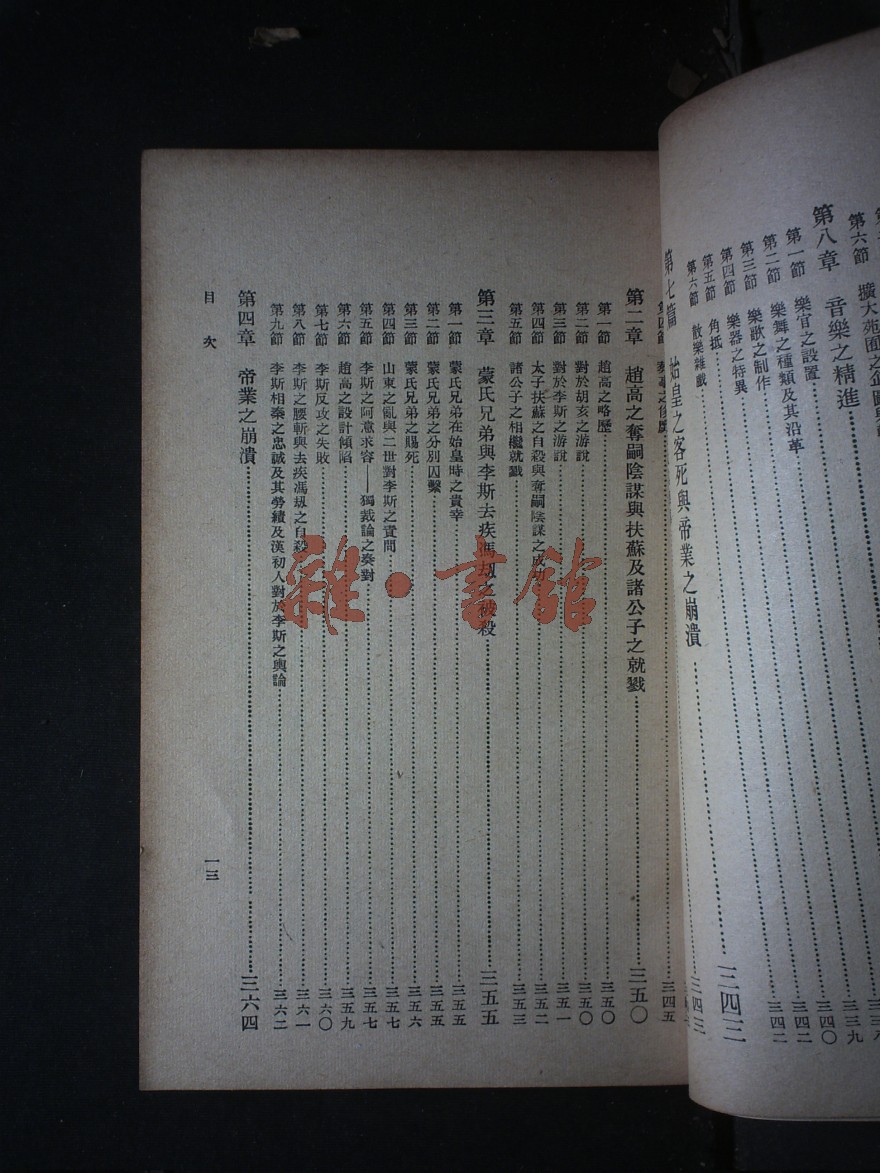 第六節 擴大苑囿之企圖與
第八章 音樂之精進
第一節 樂官之設置 三三九
第二節 樂舞之種類及其沿革 三四〇
第三節 樂歌之制作 三四二
第四節 樂器之特異 三四二
第五節 角抵
第六節 散樂雜戲 三四三
第七篇 始皇之客死與帝業之崩潰 三四三
第四節 三四五
第二章 趙高之奪嗣陰謀與扶蘇及諸公子之就戮 三五〇
第一節 趙高之略歷 三五〇
第二節 對於胡亥之游說 三五〇
第三節 對於李斯之游說 三五一
第四節 太子扶蘇之自殺與奪嗣陰謀之成功 三五二
第五節 諸公子之相繼就戮 三五三
第三章 蒙氏兄弟與李斯去疾馮劫之被殺 三五五
第一節 蒙氏兄弟在始皇時之貴幸 三五五
第二節 蒙氏兄弟之分別囚繫 三五五
第三節 蒙氏兄弟之賜死 三五六
第四節 山東之亂與二世對李斯之責問 三五七
第五節 李斯之阿意求容——獨裁論之奏對 三五七
第六節 趙高之設計傾陷 三五九
第七節 李斯反攻之失敗 三六〇
第八節 李斯之腰斬與去疾馮劫之自殺 三六一
第九節 李斯相秦之忠誠及其勞績及漢初人對於李斯之輿論 三六二
第四章 帝業之崩潰 三六四
目次 一三
雜·書館